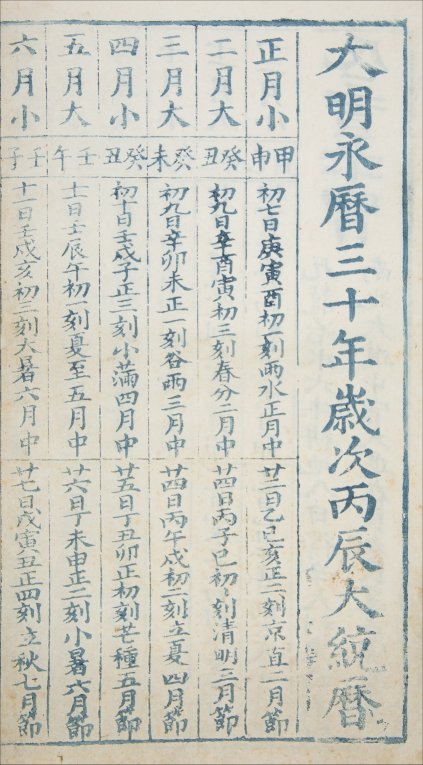 大明永暦三十年歲次丙辰大統暦
正月小
甲申
初七日庚寅酉初一刻雨水正月中
廿二日乙巳亥正二刻京直二月節
二月大
癸丑
初九日辛酉寅初三刻春分二月中
廿四日丙子巳初々刻清明三月節
三月大
癸未
初九日辛卯未正一刻谷雨三月中
廿四日丙午戌初二刻立夏四月節
四月小
癸丑
初十日壬戌子正三刻小滿四月中
廿五日丁丑卯正初刻芒種五月節
五月大
壬午
十一日壬辰午初一刻夏至五月中
廿六日丁未申正二刻小暑六月節
六月小
壬子
十一日壬戌亥初三刻大暑六月中
廿七日戊寅丑正四刻立秋七月節